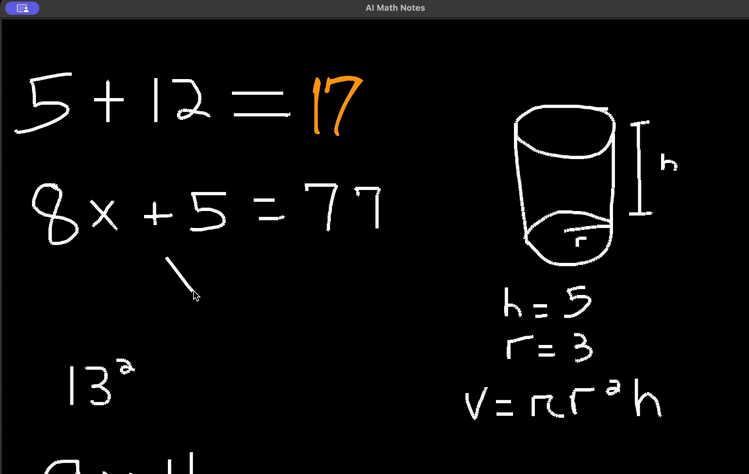 AI Math Notes
5 + 12 = 17
8x + 5 = 77
13²
h
r
h = 5
r = 3
V = πr²h